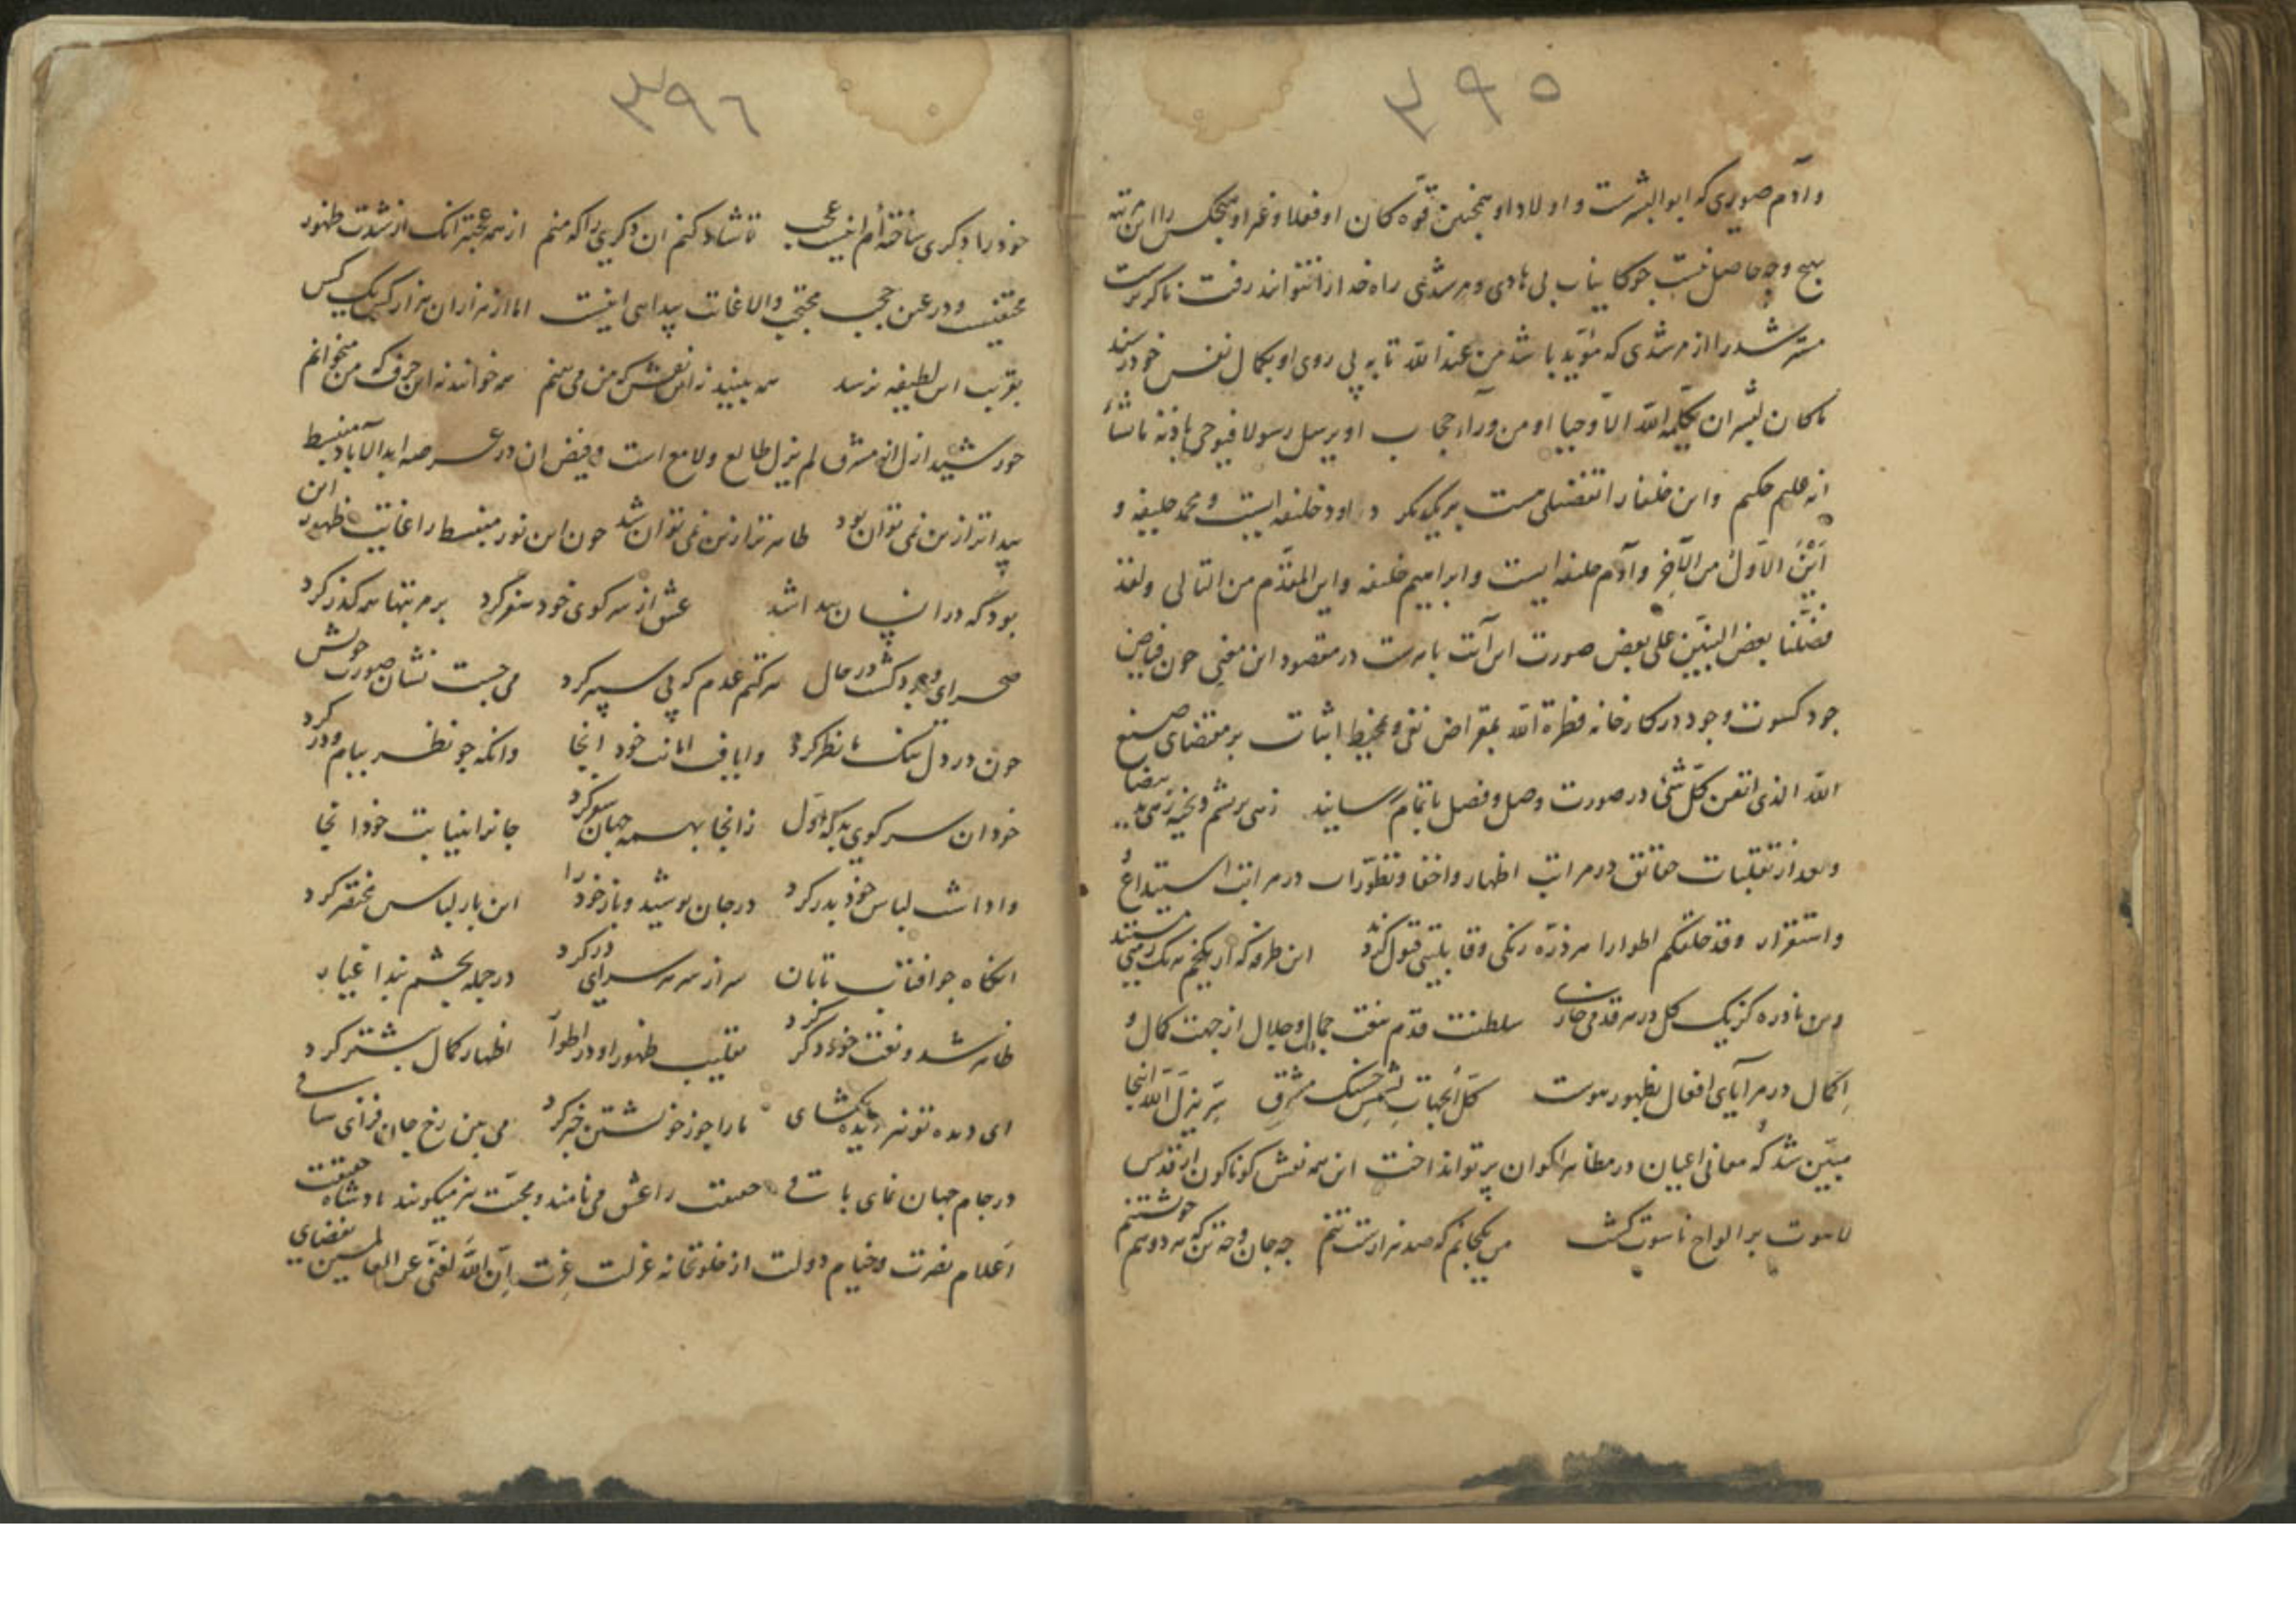 ۳۹۵
وآدم صوری که ابوالبشرست و اولاد او همچنین قوة کان او فعلا و غیر او هیچکس را این مرتبه
بهیچ وجه حاصل نیست چو کاینات بی هادی و مرشدی راه خدا را نتوانند رفت ناگزیرست
مسترشد را از مرشدی که مؤید باشد من عند الله تا به پی روی او بکمال نفس خود رسند
ما کان لبشر ان یکلمه الله الا وحیا او من ورآء حجاب او یرسل رسولا فیوحی باذنه ما یشآء
انه علیم حکیم واین خلفا را تفضیلی هست بر یکدیگر داود خلیفه ایست و محمد خلیفه و
أین الاول من الآخر وآدم خلیفه ایست و ابراهیم خلیفه واین المقدم من التالی ولقد
فضلنا بعض النبیین علی بعض صورت این آیت باهرست در مقصود این معنی چون فیاض
جود کسوت وجود در کارخانه فطرة الله بمقراض نفی و بخیط اثبات بر مقتضای صنع
الله الذی اتقن کل شئ در صورت وصل و فصل باتمام رسانید زهی بریشم و بخیه زهی ید بیضا
وبعد از تقلیبات حقائق در مراتب اظهار و اخفا و تطورات در مراتب استیداع
واستقرار وقد خلقکم اطوارا هر ذره رنگی و قابلیتی قبول کرد این طرفه که از یک خم هر یک
وین نادره کز یک گل در هر قدمی خاری سلطنت قدم بنعت جمال و جلال از جهت کمال و
اکمال در مرآیای افعال بظهور پیوست کل الجهات لشمس حسنک مشرق
مبین شد که معانی اعیان در مظاهر اکوان پرتو انداخت این همه نقش گوناگون از قدس
لاهوت بر الواح ناسوت گشت من یکجانم که صد هزارست تنم چه جان و چه تن که هر دو هم خویشتنم
۳۹۶
خود را دگری ساخته‌ام اینت عجب تا شاد کنم آن دگری را که منم از همه عجبتر آنک از شدت ظهور
مختفیست و در عین حجب محتجب والا غایت پیدایی اینست اما از هزاران هزار کس یک کس
بقربت این لطیفه نرسد همه بینید نه این نقش که من می بینم همه خوانند نه این حرف که من میخوانم
خورشید ازل از مشرق لم یزل طالع و لامع است و فیض آن در عرصه ابد الآباد منبسط
پیداتر ازین نمی توان بود ظاهرتر ازین نمی توان شد چون این نور منبسط را غایت ظهور این
بود که در انسان پیدا شد عشق از سر کوی خود سفر کرد بر مرتبتها همه گذر کرد
صحرای وجود گشت در حال هر کتم عدم که پی سپر کرد می جست نشان صورت خویش
چون در دل تنگ ما نظر کرد وایافت امانت خود آنجا وانگه چو نظر ببام و در کرد
خود آن سر کوی بد که اول زانجا بهمه جهان سفر کرد جانرا بنیابت خود آنجا
واداشت لباس خود بدر کرد در جان پوشید و باز خود را این بار لباس مختصر کرد
آنگاه چو آفتاب تابان سر از سر هر سرای در کرد در جمله بچشم بند اغیار
ظاهر شد و نعت خود دگر کرد تقلیب ظهور او در اطوار اظهار کمال بیشتر کرد
ای دیده تو نیز دیده بگشای ما را چو ز خویشتن خبر کرد می بین رخ جان فزای ساقی
در جام جهان نمای باقی حقیقت را عشق می نامند و محبت نیز میگویند پادشاه حقیقت
اعلام نصرت و خیام دولت از خلوتخانه عزلت عزت إن الله لغنی عن العالمین بفضای